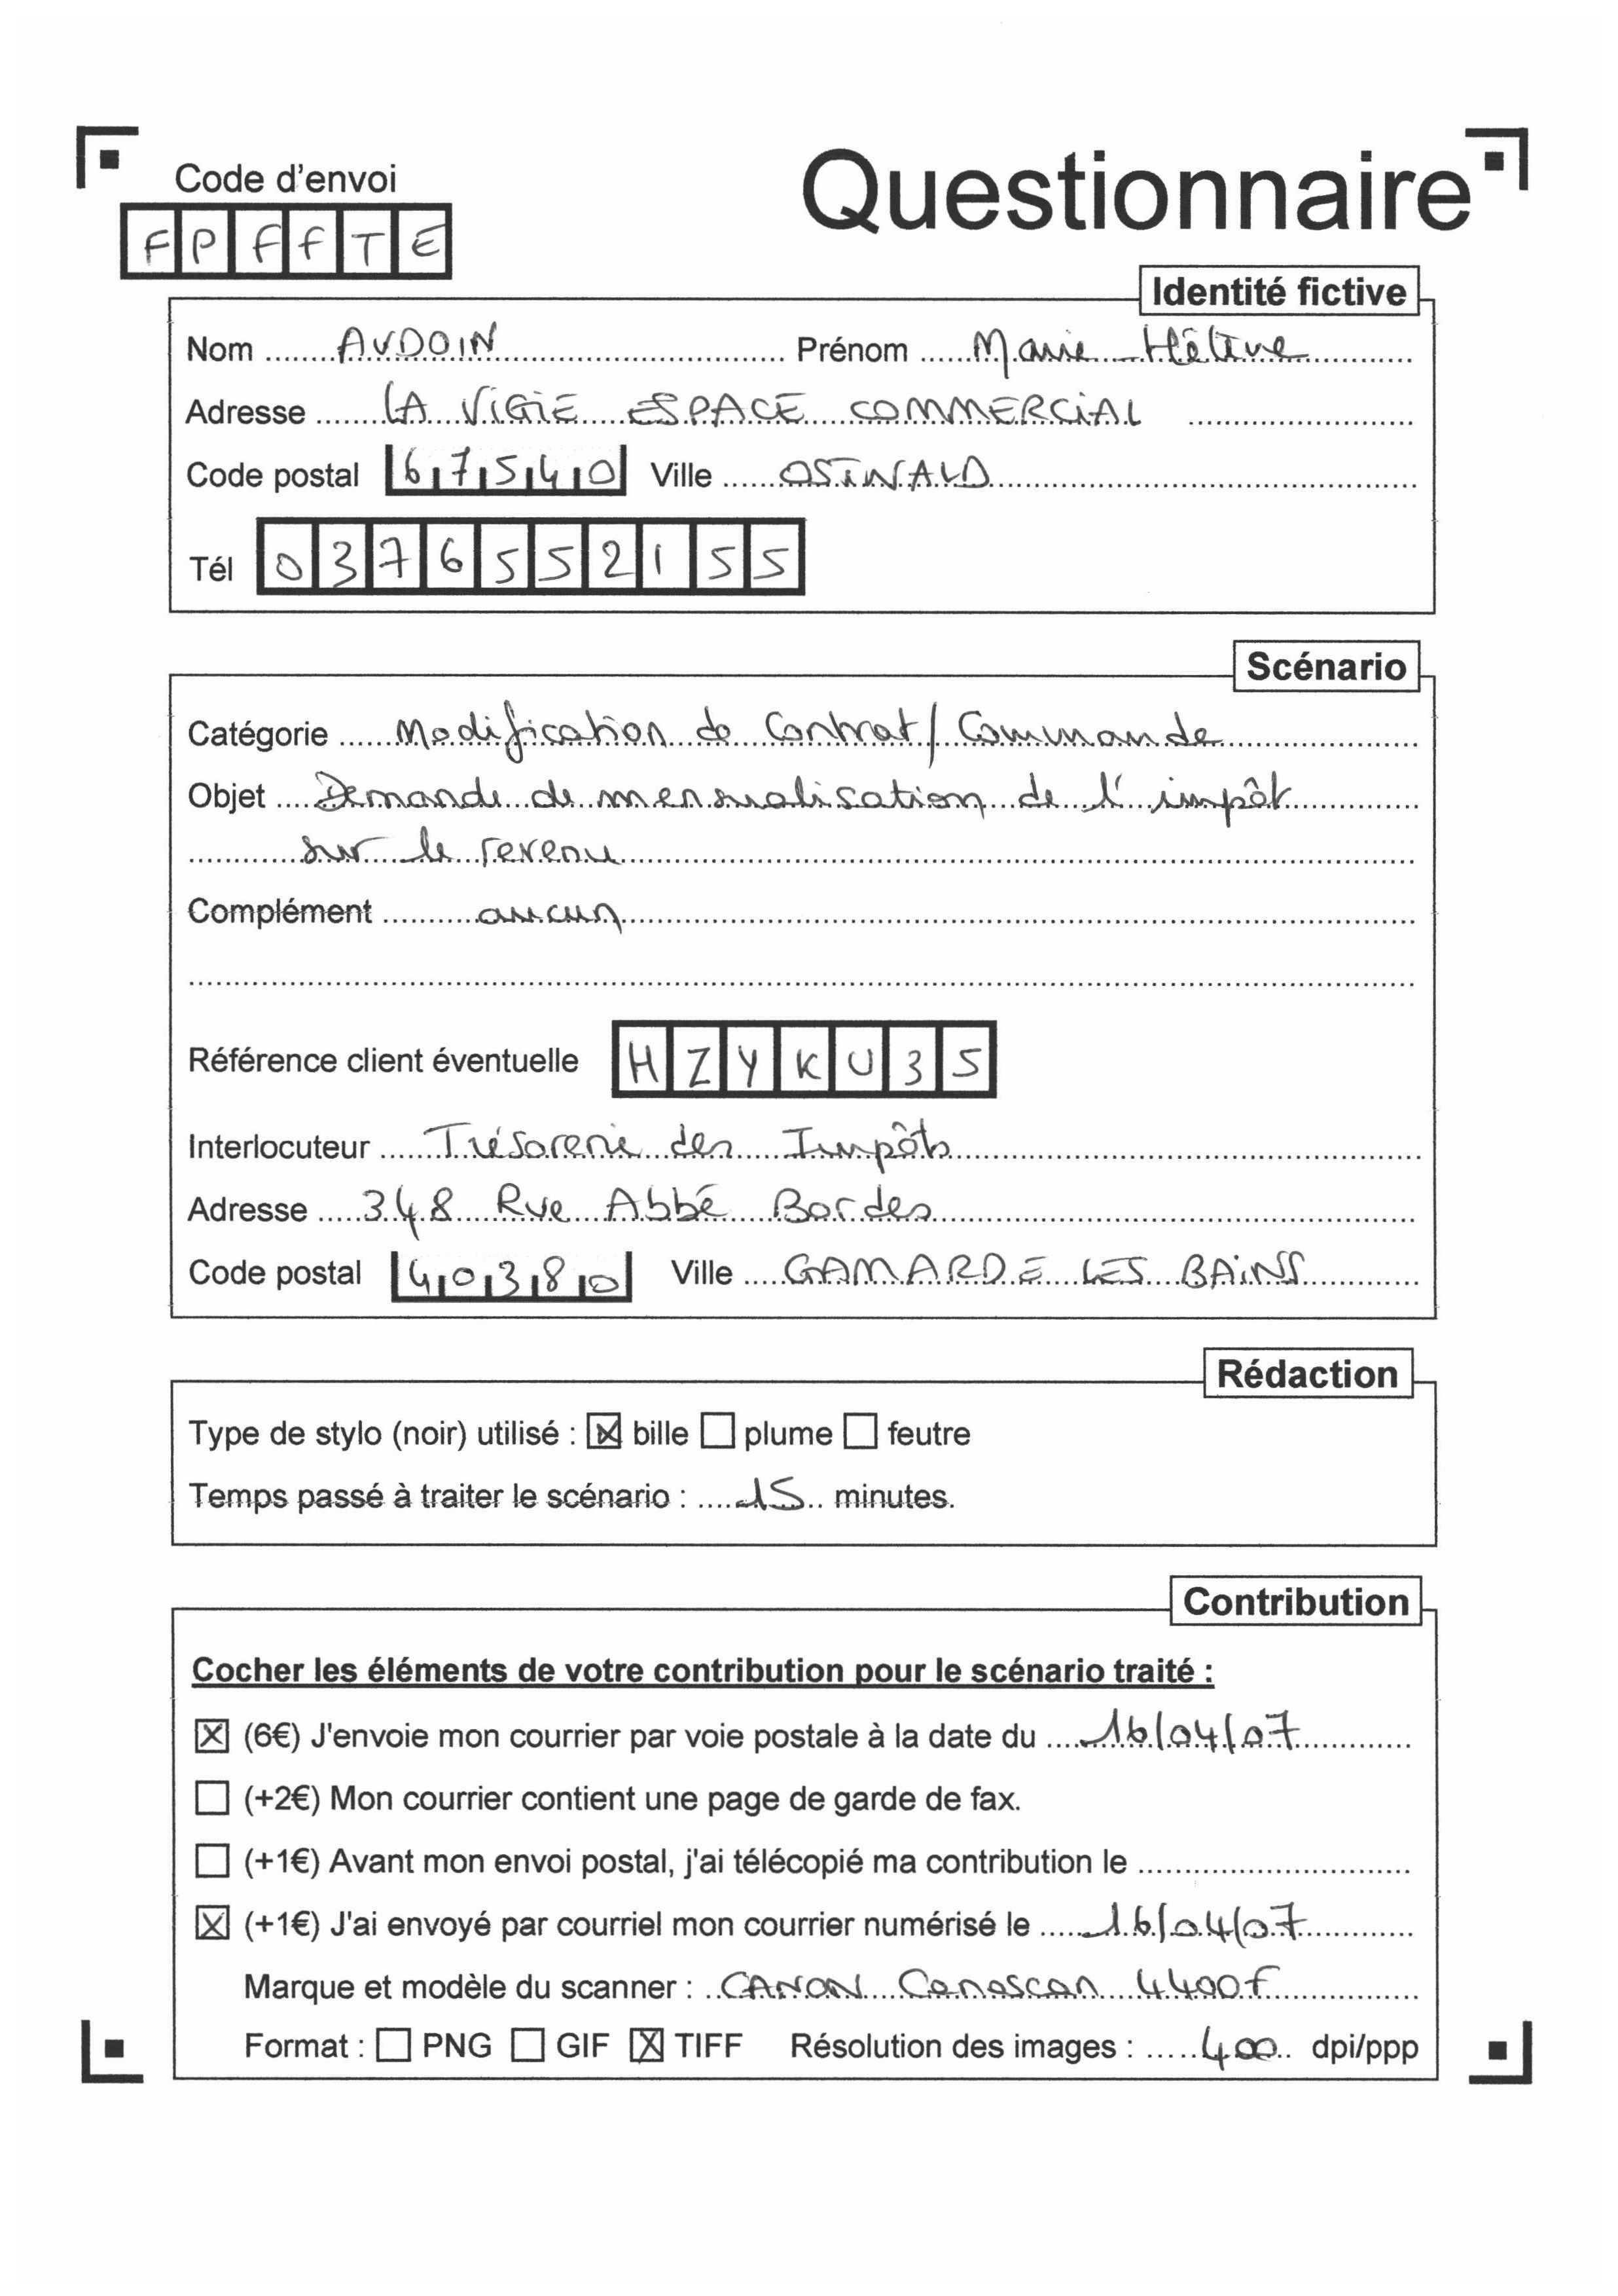 Questionnaire
Code d'envoi
FPFFTE
Identité fictive
Nom AUDOIN Prénom Marie-Hélène
Adresse LA VIGIE ESPACE COMMERCIAL
Code postal 67540 Ville OSTWALD
Tél 0376552155
Scénario
Catégorie Modification de Contrat/Commande
Objet Demande de mensualisation de l'impôt
sur le revenu
Complément aucun
Référence client éventuelle HZYKU35
Interlocuteur Trésorerie des Impôts
Adresse 348 Rue Abbé Bordes
Code postal 40380 Ville GAMARDE LES BAINS
Rédaction
Type de stylo (noir) utilisé : ☒ bille ☐ plume ☐ feutre
Temps passé à traiter le scénario : 15 minutes.
Contribution
Cocher les éléments de votre contribution pour le scénario traité :
☒ (6€) J'envoie mon courrier par voie postale à la date du 16/04/07
☐ (+2€) Mon courrier contient une page de garde de fax.
☐ (+1€) Avant mon envoi postal, j'ai télécopié ma contribution le
☒ (+1€) J'ai envoyé par courriel mon courrier numérisé le 16/04/07
Marque et modèle du scanner : CANON Canoscan 4400F
Format : ☐ PNG ☐ GIF ☒ TIFF Résolution des images : 400 dpi/ppp